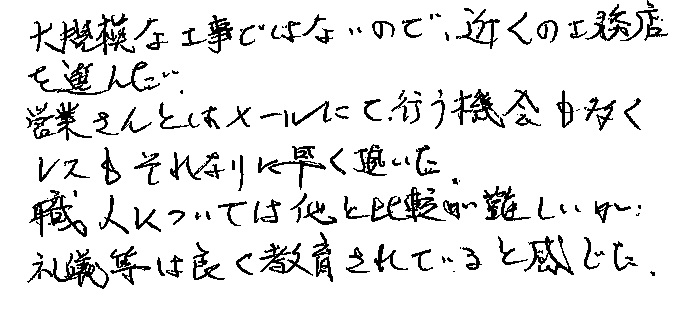 大規模な工事ではないので、近くの工務店
を選んだ。
営業さんとはメールにて行う機会も多く
レスもそれなりに早く返いた。
職人については他と比較が難しいが、
礼儀等は良く教育されていると感じた。